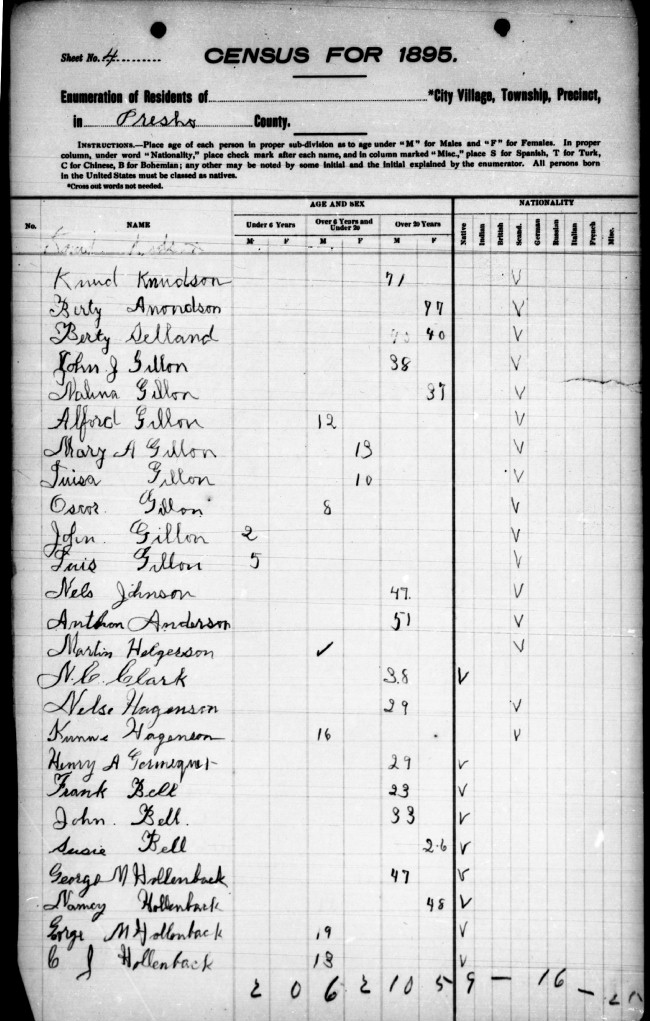 Sheet No. 4
CENSUS FOR 1895.
Enumeration of Residents of *City Village, Township, Precinct,
in Presho County.
INSTRUCTIONS.—Place age of each person in proper sub-division as to age under "M" for Males and "F" for Females. In proper
column, under word "Nationality," place check mark after each name, and in column marked "Misc.," place S for Spanish, T for Turk,
C for Chinese, B for Bohemian; any other may be noted by some initial and the initial explained by the enumerator. All persons born
in the United States must be classed as natives.
*Cross out words not needed.
AGE AND SEX NATIONALITY
No. NAME Under 6 Years Over 6 Years and Under 20 Over 20 Years Native Indian British Scand. German Russian Italian French Misc.
M F M F M F
Knud Knudson 71 V
Berty Anondson 77 V
Berty Selland 40 V
John J Gillon 38 V
Malina Gillon 37 V
Alford Gillon 12 V
Mary A Gillon 13 V
Luisa Gillon 10 V
Oscor Gillon 8 V
John Gillon 2 V
Luis Gillon 5 V
Nels Johnson 47 V
Anthon Anderson 51 V
Martin Helgerson ✓ V
N. C. Clark 38 V
Nelse Hagenson 29 V
Hagenson 16 V
Henry A 29 V
Frank Bell 23 V
John Bell 33 V
Susie Bell 26 V
George M Hollenback 47 V
Nancy Hollenback 48 V
Gorge M Hollonback 19 V
C J Hollenback 13 V
2 0 6 2 10 5 9 — 16 —